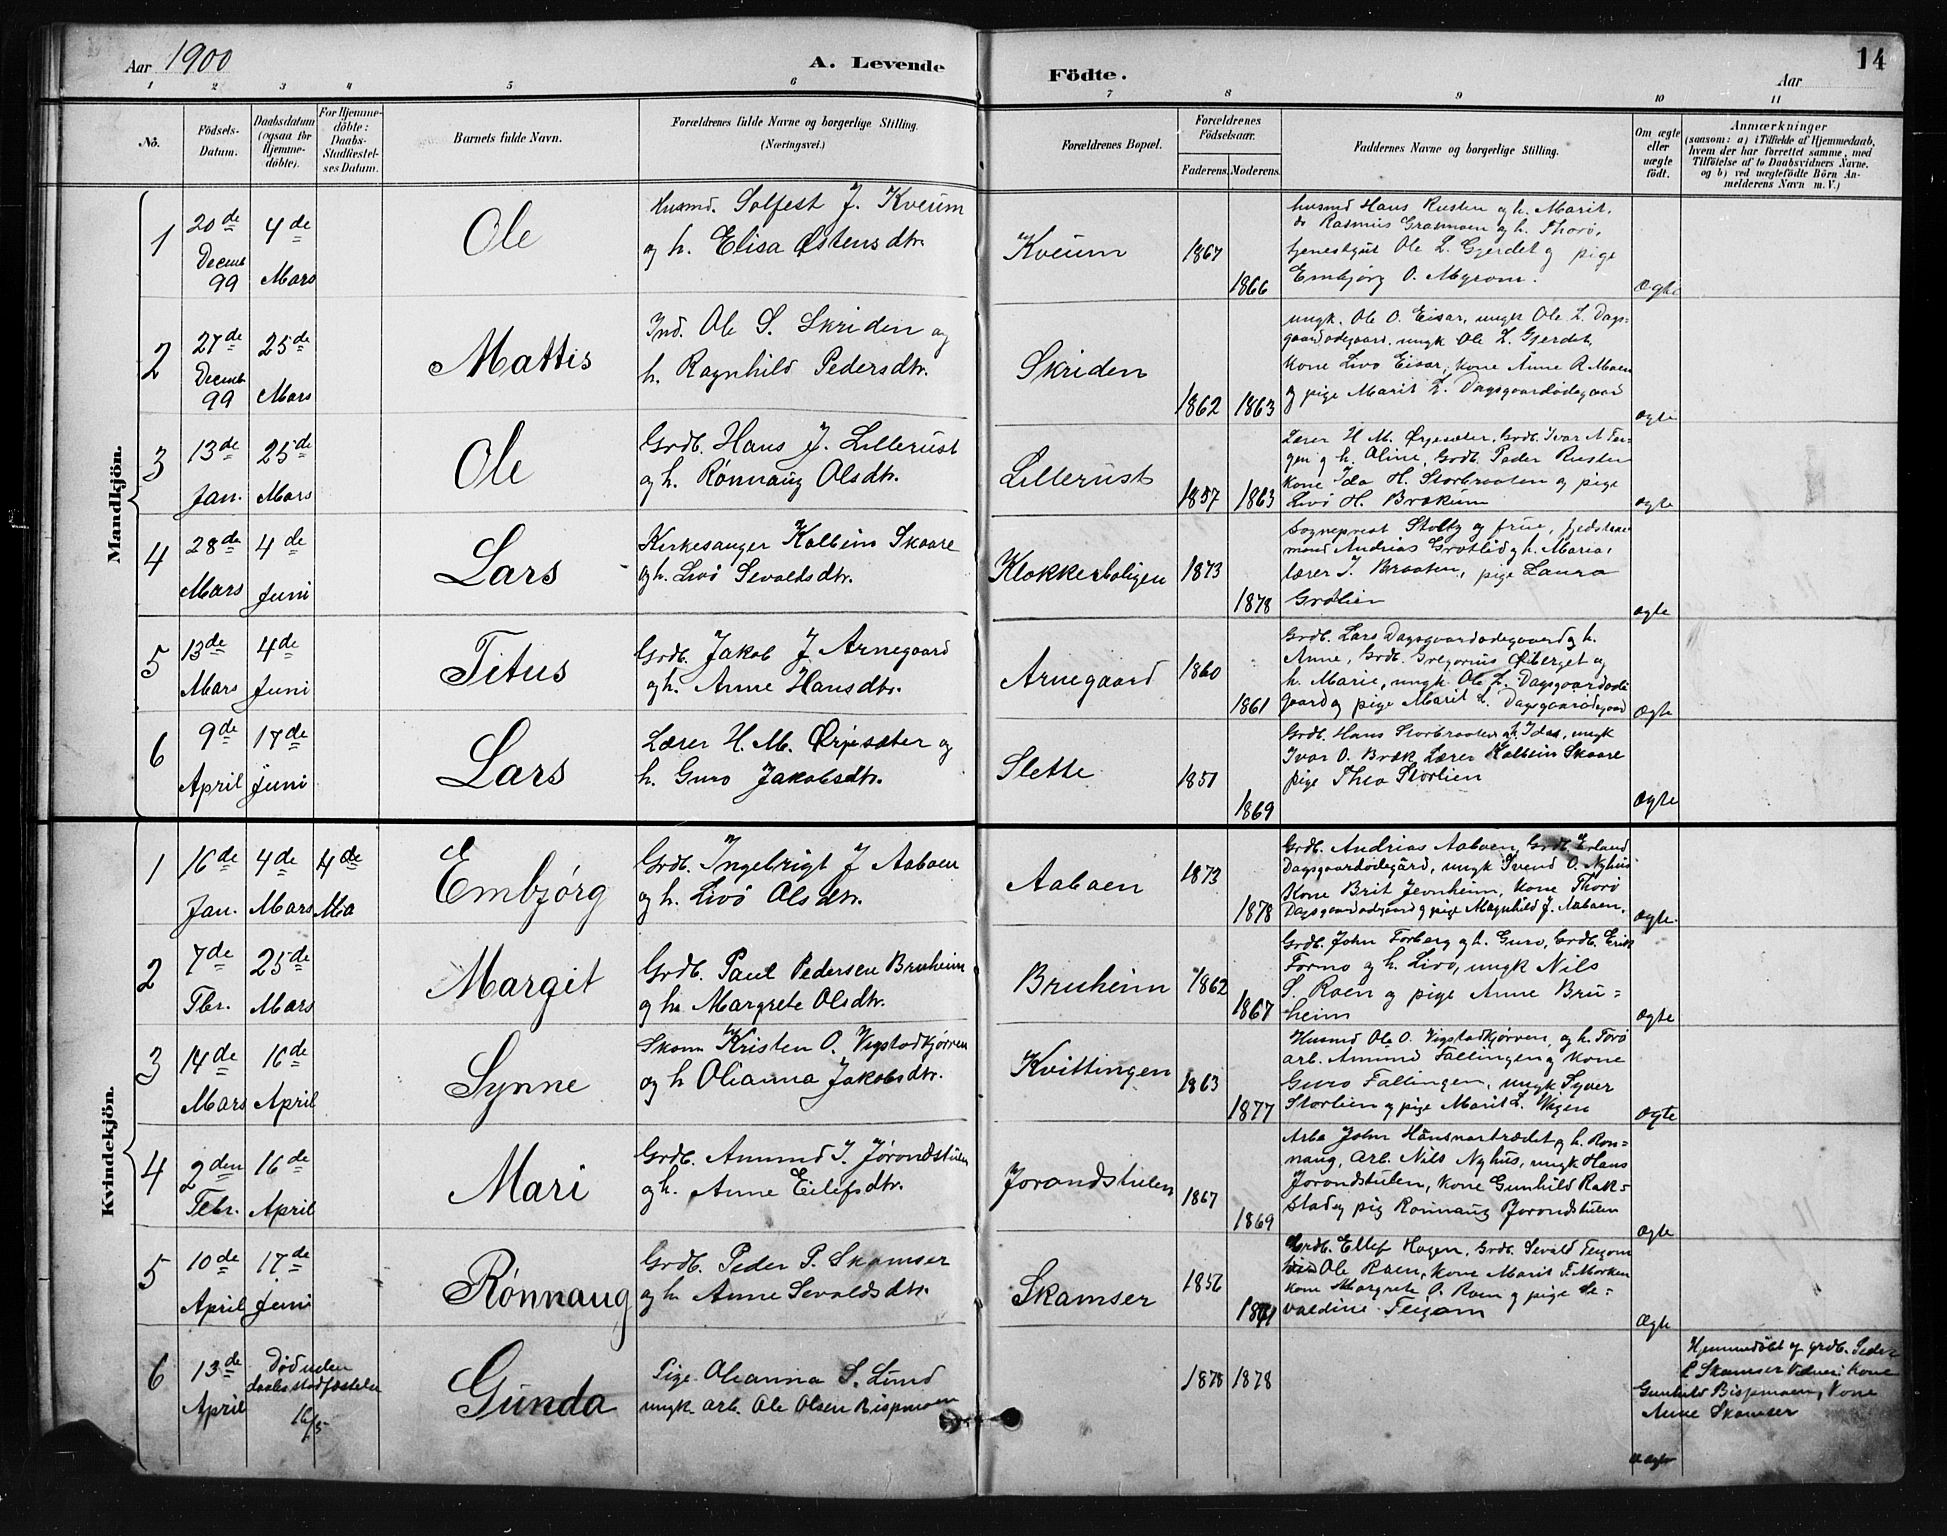 Aar 1900
A. Levende
Födte.
Aar
14
1 2 3 4 5 6 7 8 9 10 11
No.
Födsels-
Datum.
Daabsdatum
(ogsaa for
Hjemme-
döbte).
For Hjemme-
döbte:
Daabs-
Stadfæstel-
ses Datum.
Barnets fulde Navn.
Forældrenes fulde Navne og borgerlige Stilling.
(Næringsvei.)
Forældrenes Bopæl.
Forældrenes
Födselsaar.
Faderens. Moderens.
Faddernes Navne og borgerlige Stilling.
Om ægte
eller
uægte
født.
Anmærkninger
(saasom: a) i Tilfælde af Hjemmedaab,
hvem der har forrettet samme, med
Tilföielse af to Daabsvidners Navne.
og b) ved uægtefödte Börn An-
melderens Navn m. V.)
Mandkjön.
1
20de
Decemb
99
4de
Mars
Ole
Husmd. Solfest J. Kveum
og h. Elisa Østensdtr.
Kveum
1867
1866
husmd Hans Rusten og h. Marit,
do Rasmus Gramoen og h. Thorø,
tjenestgut Ole L. Gjerdet og pige
Embjørg O. Myrom.
Ægte
2
27de
Decemb
99
25de
Mars
Mattis
Ind. Ole S. Skriden og
h. Ragnhild Pedersdtr.
Skriden
1862
1863
ungk. Ole O. Eisar, ungk Ole L. Dags-
gaardødegaard. ungk Ole L. Gjerdet,
kone Livø Eisar, kone Anne R Moen
og pige Marit L. Dagsgaardødegaard
ægte
3
13de
Jan.
25de
Mars
Ole
Grdb. Hans J. Lillerust
og h. Rønnaug Olsdtr.
Lillerust
1857
1863
Lærer H M. Ørjesæter, Grdb. Ivar N Fer-
gen og h. Oline, Grdb. Peder Rusten
kone Ida H. Storbraaten og pige
Livø H. Brækum
ægte
4
28de
Mars
4de
Juni
Lars
Kirkesanger Kolbein Skaare
og h. Livø Sevaldsdtr.
Klokkerboligen
1873
1878
Sogneprest Stoltz og frue,
mand Andrias Grøtlid og h. Maria,
lærer J. Braaten, pige Laura
Grølien
ægte
5
13de
Mars
4de
Juni
Titus
Grdb. Jakob J. Arnegaard
og h. Anne Hansdtr.
Arnegaard
1860
1861
Grdb. Lars Dagsgaardødegaard og h.
Anne, Grdb. Gregorius Øiberget og
h. Marie, ungk. Ole L. Dagsgaardøde
gaard og pige Marit L. Dagsgaardødegaard
Ægte
6
9de
April
17de
Juni
Lars
Lærer H. M. Ørjesæter og
h. Guro Jakobsdtr.
Slette
1851
1869
Grdb. Hans Storbraaten og h. Ida, ungk
Ivar O. Bræk Lærer Kolbein Skaare
pige Thea Storlien
Ægte
Kvindekjön.
1
16de
Jan.
4de
Mars
4de
Ma
Embjørg
Grdb. Ingebrigt J Aabaen
og h. Livø Olsdtr.
Aabaen
1873
1878
Grdb. Andrias Aabaen, Grdb. Erlend
Dagsgaardødegård, ungk Svend O. Nyhus
Kone Brit Jevnheim, kone Thorø
Dagsgaardødegaard og pige Magnhild J. Aabaen.
ægte.
2
7de
Fbr.
25de
Mars
Margit
Grdb. Paul Pedersen Bruheim
og h. Margrete Olsdtr.
Bruheim
1862
1867
Grdb. John Forberg og h. Guro, Grdb. Erik
Forno og h. Livø, ungk Nils
S. Roen og pige Anne Bru-
heim
ægte
3
14de
Mars
16de
April
Synne
Skom Kristen O. Vigstadkjørven
og h Olianna Jakobsdtr.
Kvittingen
1863
1877
Husmd Ole O. Vigstadkjørven, og h. Torø
arb. Amund Fallingen og kone
Guro Fallingen, ungk Syver
Storlien og pige Marit L.
ægte
4
2den
Febr.
16de
April
Mari
Grdb. Amund J. Jørondstulen
og h. Anne Eilefsdtr.
Jorandstulen
1867
1869
Arb. John Hånsnartrædet og h. Røn-
naug, Arb. Nils Nyhus, ungk Hans
Jorondstulen, kone Gunhild Rak-
stad og pig Rønnaug Jorondstulen
ægte
5
10de
April
17de
Juni
Rønnaug
Grdb. Peder P. Skamser
og h. Anne Sevaldsdtr.
Skamser
1856
Grdb. Ellef Hagen, Grdb. Sevald Teigom
Ole Roen, kone Marit F. Morken
kone Margrete O. Roen og pige Se-
valdine Teigom
Ægte
6
13de
April
Død uden
daabsstadfæstelse
16/5
Gunda
Pige Olianna S. Lund
ungk. arb. Ole Olsen Bispmoen
1878
1878
Hjemmedøbt af grdb. Peder
P. Skamser Vidner: Kone
Gunhild Bispmoen, Kone
Anne Skamser